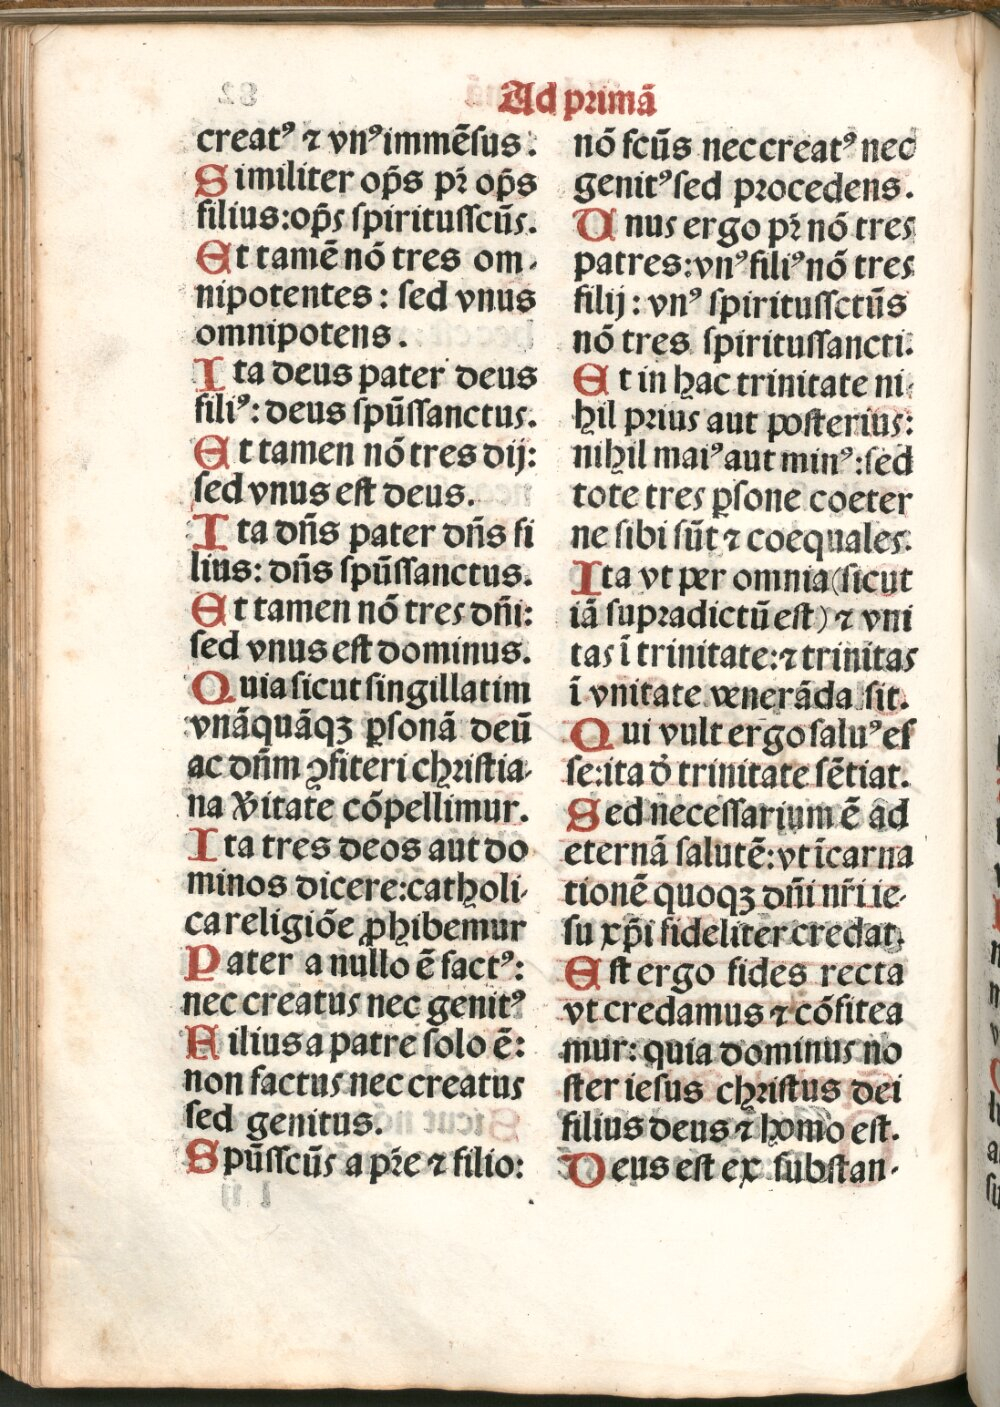 Ad primā
creatꝰ ⁊ vnꝰ immēſus:
Similiter op̄s pr̄ op̄s
filius: op̄s ſpirituſſcūs.
Et tamē nō tres om-
nipotentes: ſed vnus
omnipotens.
Ita deus pater deus
filiꝰ: deus ſpūſſanctus.
Et tamen nō tres dij:
ſed vnus eſt deus.
Ita dn̄s pater dn̄s fi
lius: dn̄s ſpūſſanctus.
Et tamen nō tres dn̄i:
ſed vnus eſt dominus.
Quia ſicut ſingillatim
vnāquāqꝫ ꝑſonā deū
ac dn̄m ꝯfiteri chꝛiſtia-
na v̄itate cōpellimur.
Ita tres deos aut do
minos dicere: catholi-
ca religiōe ꝓhibemur
Pater a nullo ē factꝰ:
nec creatus nec genitꝰ
Filius a patre ſolo ē:
non factus nec creatus
ſed genitus.
Spūſſcūs a pr̄e ⁊ filio:
nō fcūs nec creatꝰ nec
genitꝰ ſed pꝛocedens.
Unus ergo pr̄ nō tres
patres: vnꝰ filiꝰ nō tres
filij: vnꝰ ſpirituſſctūs
nō tres ſpirituſſancti.
Et in hac trinitate ni-
hil pꝛius aut poſterius:
nihil maiꝰ aut minꝰ: ſed
tote tres ꝑſone coeter
ne ſibi ſūt ⁊ coequales.
Ita vt per omnia (ſicut
iā ſupꝛadictū eſt) ⁊ vni
tas ī trinitate: ⁊ trinitas
ī vnitate venerāda ſit.
Qui vult ergo ſaluꝰ eſ
ſe: ita d̄ trinitate ſētiat.
Sed neceſſarium ē ad
eternā ſalutē: vt īcarna
tionē quoqꝫ dn̄i nr̄i ie-
ſu xp̄i fideliter credat.
Eſt ergo fides recta
vt credamus ⁊ cōfitea
mur: quia dominus no
ſter ieſus chꝛiſtus dei
filius deus ⁊ homo eſt.
Deus eſt ex ſubſtan-